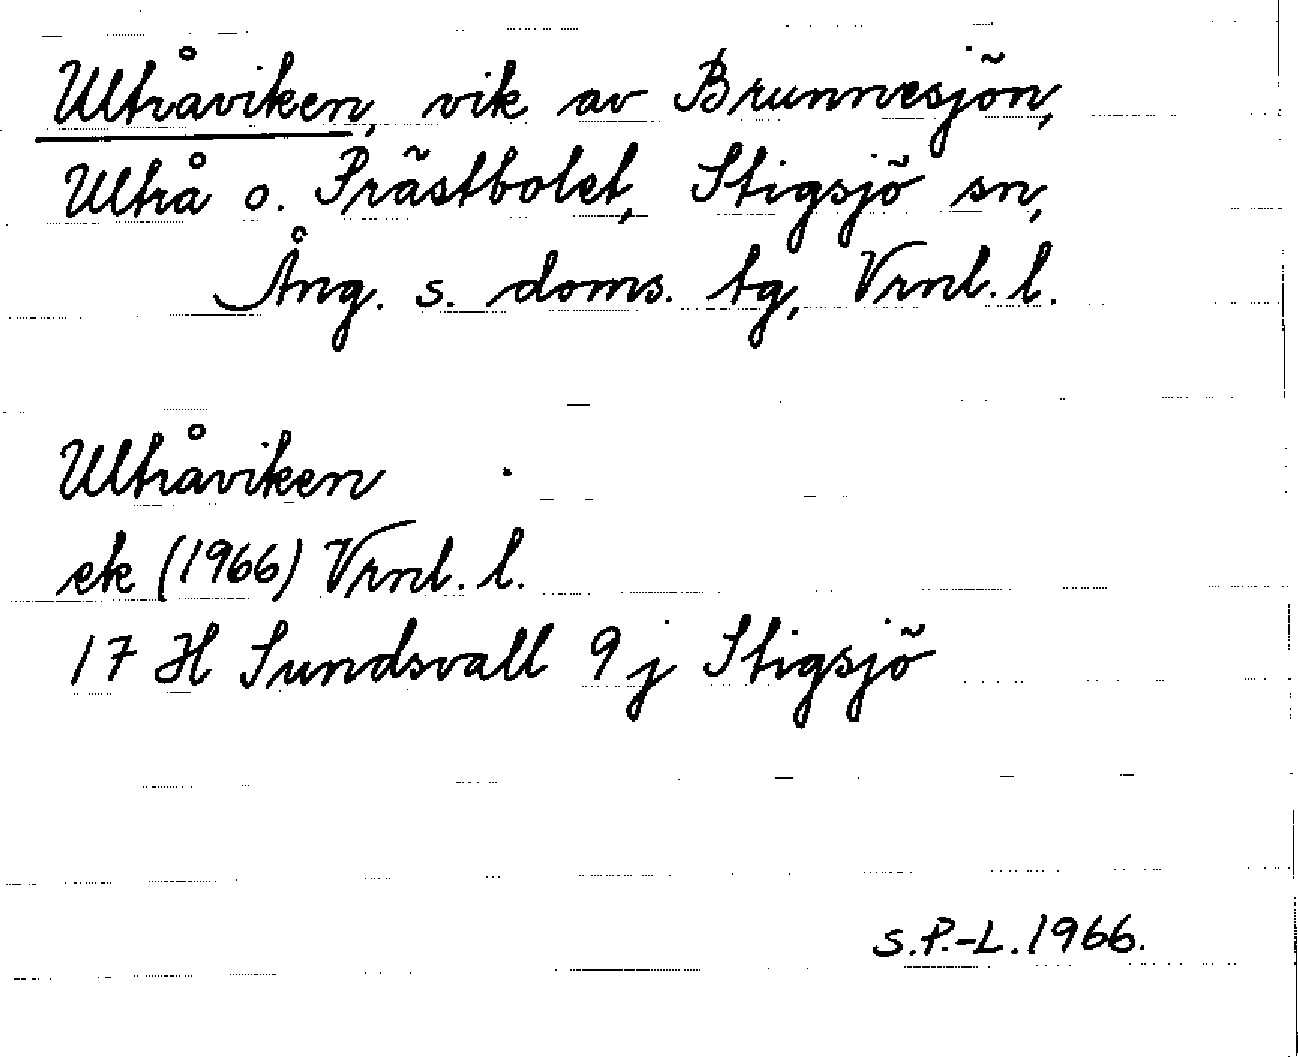 Ultråviken, vik av Brunnesjön,
Ultrå o. Prästbolet, Stigsjö sn,
Ång. s. doms. tg, Vrnl. l.
Ultråviken
ek (1966) Vrnl. l.
17 H Sundsvall 9 j Stigsjö
S.P.-L. 1966.